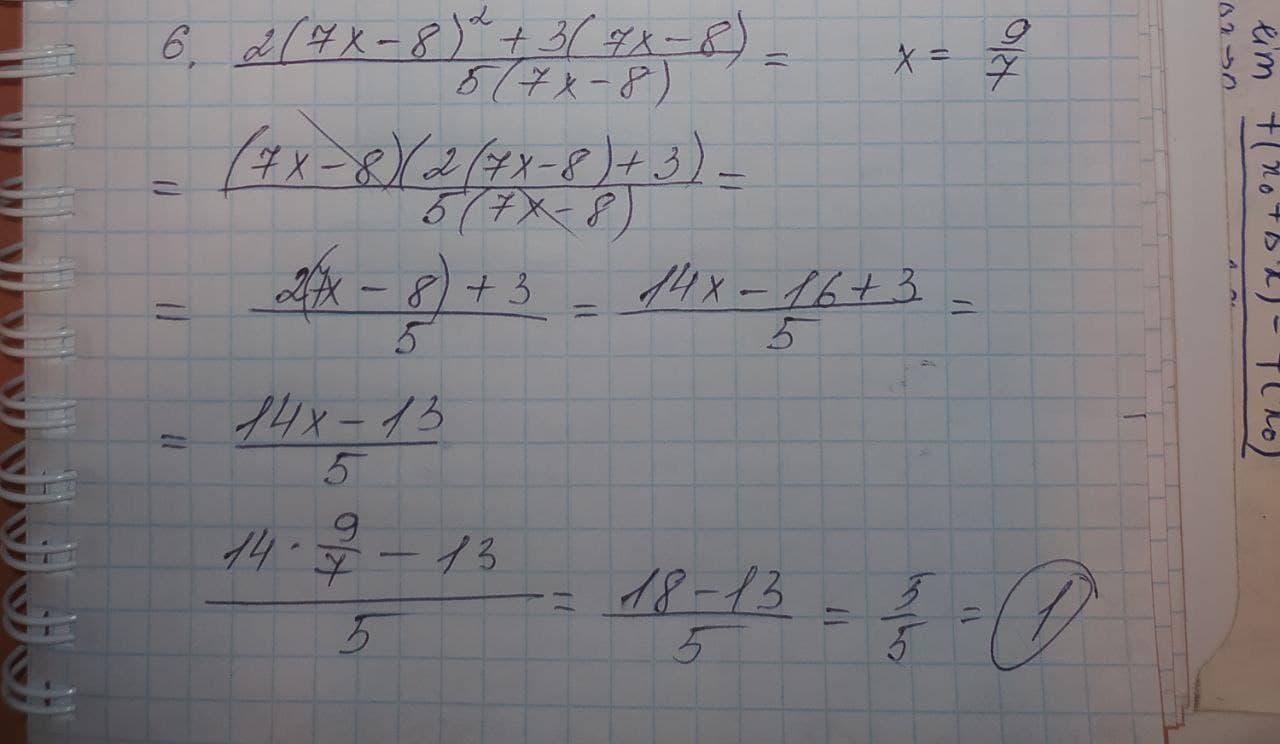 6. (2(7x-8)² + 3(7x-8))/(5(7x-8)) = x = 9/7
= ((7x-8)(2(7x-8)+3))/(5(7x-8)) =
= (2(7x-8)+3)/5 = (14x-16+3)/5 =
= (14x-13)/5
(14·9/7-13)/5 = (18-13)/5 = 5/5 = 1
lim